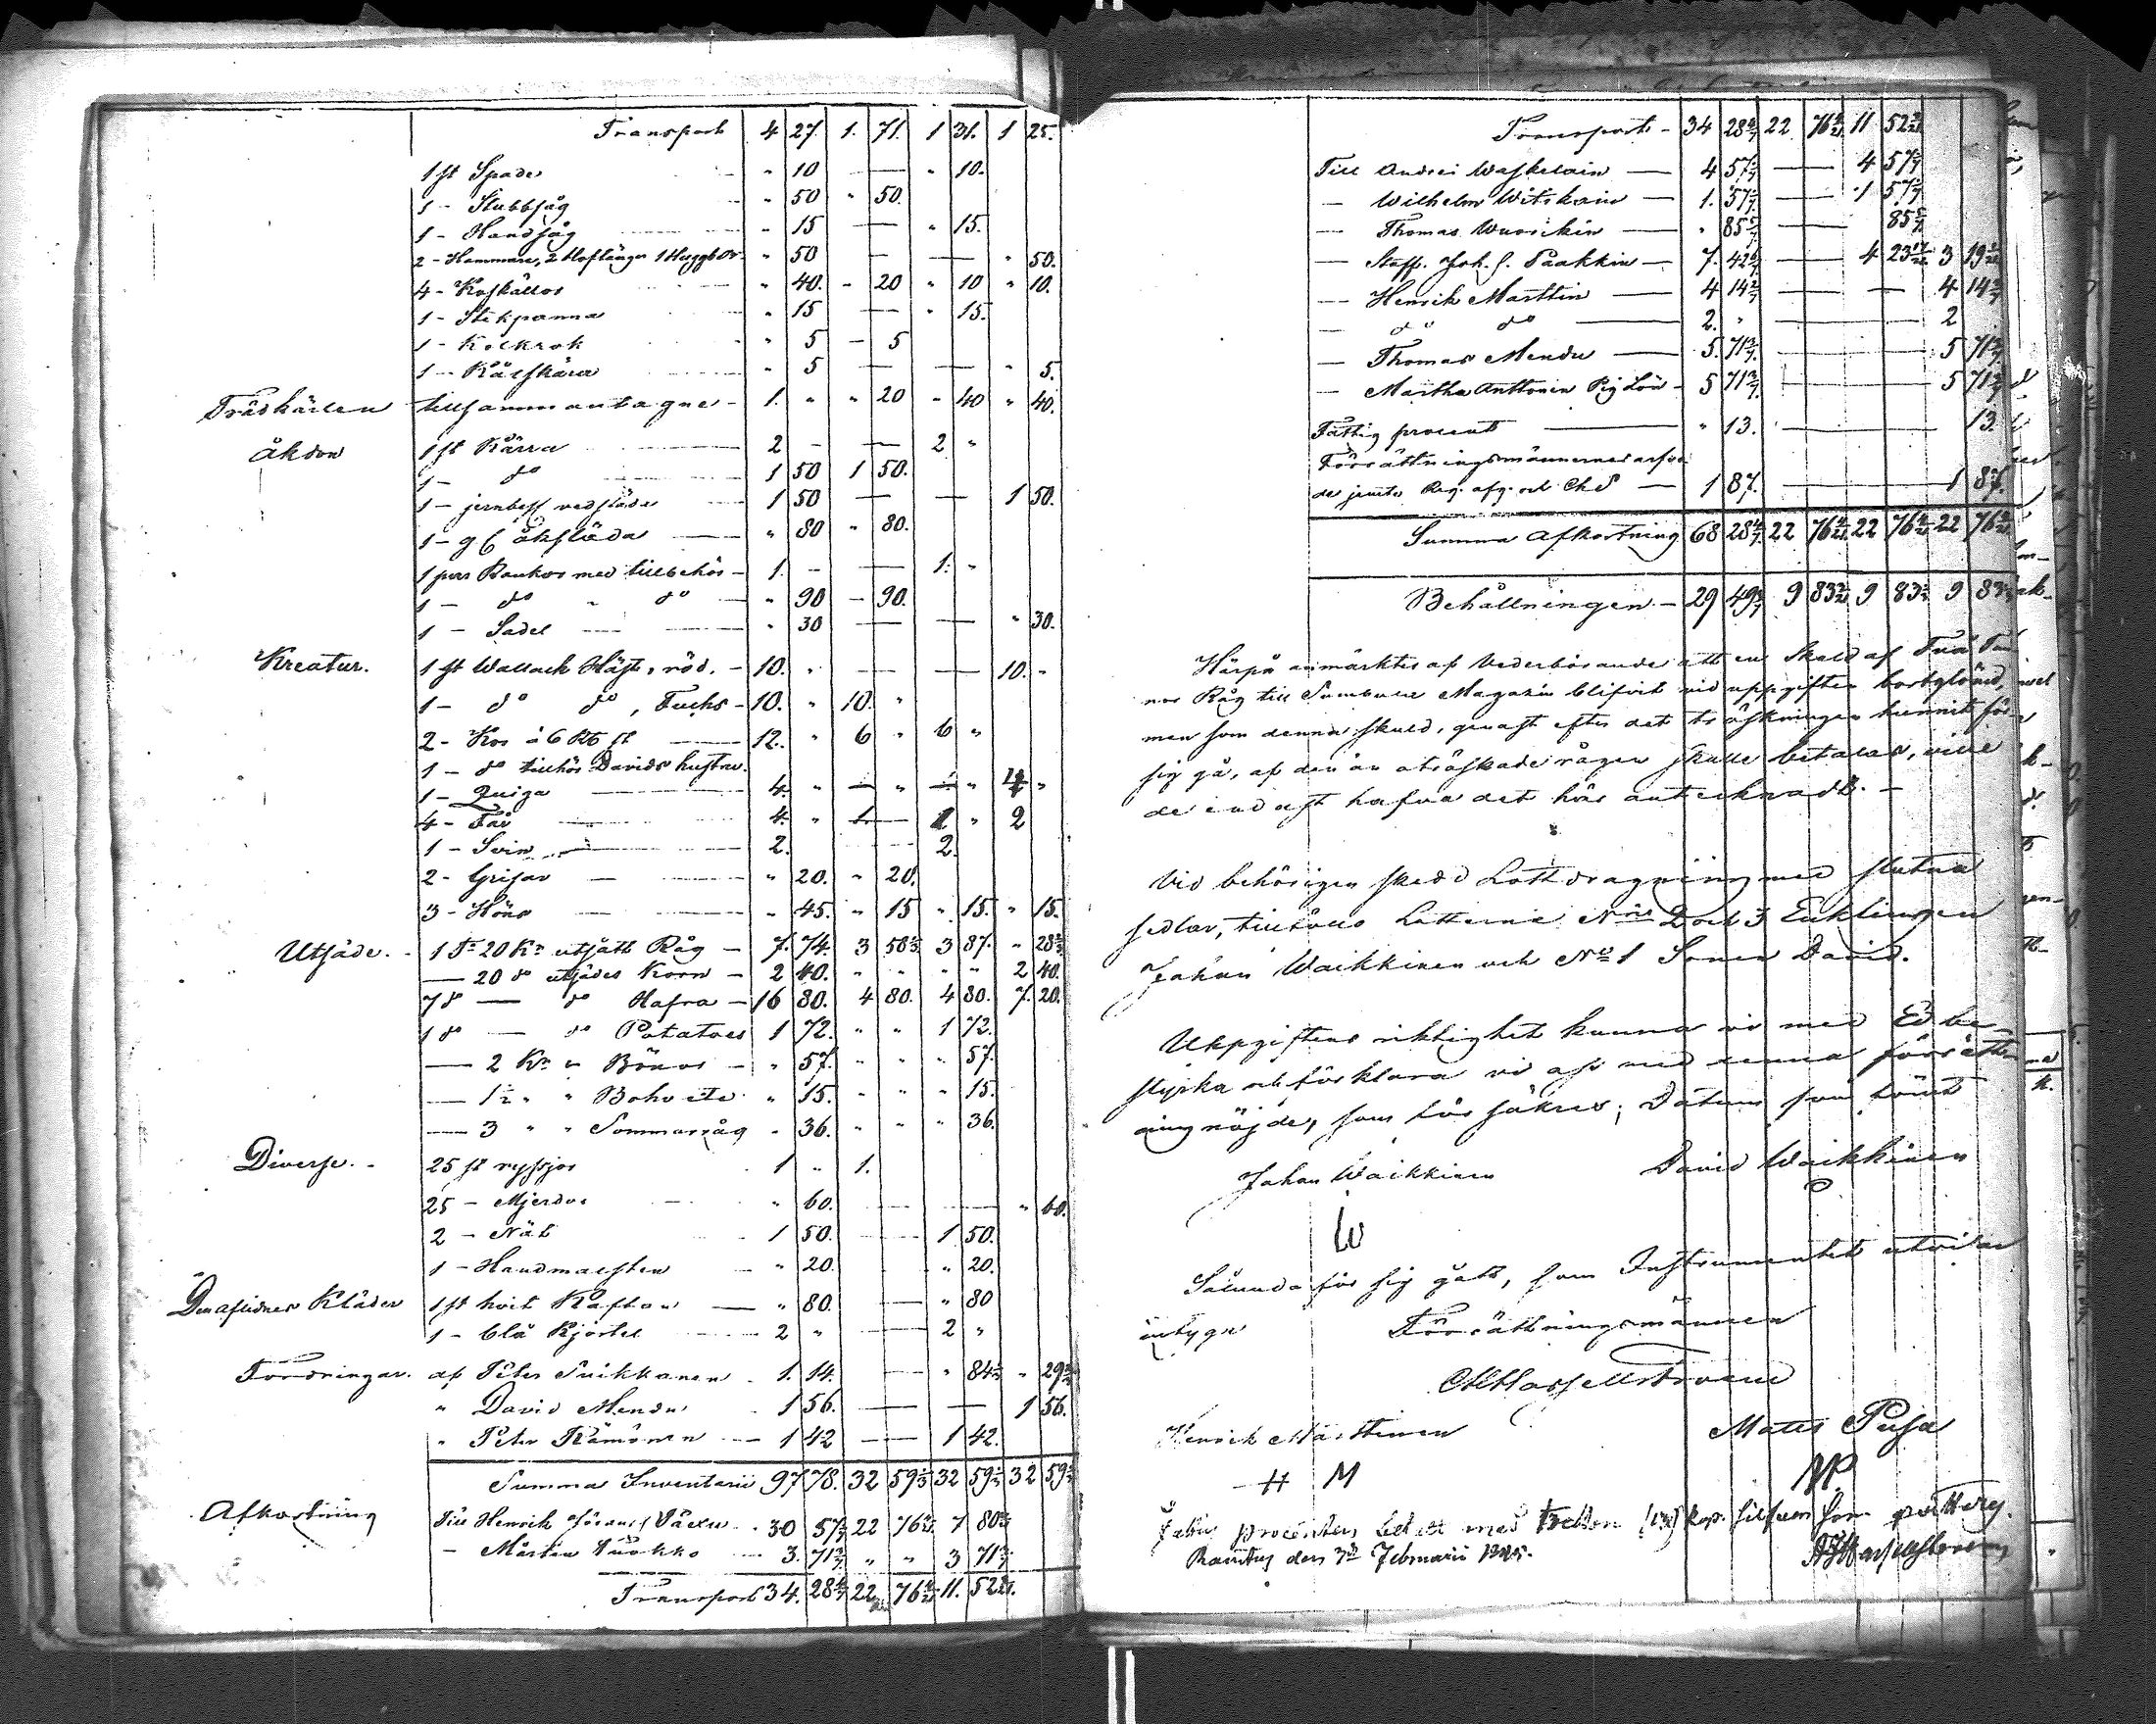 Transport 4 27. 1. 71. 1 31. 1 25.
1 st Spade " 10 — " 10.
1 - Stubbsåg " 50 " 50.
1 - Handsåg " 15 — " 15.
2 - Hammare, 2 Hoftänger 1 " 50 — — " 50.
4 - Koskällor " 40. - 20 " 10 " 10.
1 - Stekpanna " 15 — " 15.
1 - Kolkrok " 5 - 5
1 - Kålskära " 5 — — " 5.
Trädkärlen tillsammantagne - 1. " " 20 " 40 " 40.
Åkdon 1 st Kärra 2 - — 2 "
1 - do 1 50 1 50.
1 - jernbesl vedsläde 1 50 — — 1 50.
1 - g f åksläda " 80 " 80.
1 par Rankor med tillbehör - 1. - — 1. "
1 - do " do " 90 - 90.
1 - Sadel " 30 — — " 30.
Kreatur. 1 st Wallack Häst, röd. - 10. " — — 10. "
1 - do do, Fuchs - 10. " 10. "
2 - Kor à 6 Rb st 12. " 6 " 6 "
1 - do tillhör Davids hustru.
1 - Quiga 4. " — " — " 4 "
4 - Får 4. " 1 — 1 " 2
1 - Svin 2. 2.
2 - Grisar " 20. " 20.
3 - Höns " 45. " 15 " 15. " 15.
Utsäde. 1 Tr 20 Kr utsått Råg - 7. 74. 3 58 1/3 3 87. - 28 2/3
— 20 do utsådes Korn - 2 40. " " " " 2 40.
7 do — do Hafra - 16 80. 4 80. 4 80. 7. 20.
1 do — do Potatoes 1 72. " " 1 72.
— 2 Kr " Bönor " 57. " " " 57.
— 1 1/2 " " Bohvete " 15. " " " 15.
— 3 " " Sommarråg " 36. " " " 36.
Diverse. 25 st ryssjor 1 " 1.
25 - Mjerdar " 60. — — " 60.
2 - Nät 1 50. — 1 50.
1 - " 20. " 20.
Den aflidnes Kläder 1 st hvit Kaftan " 80. — " 80
1 - blå Kjortel 2 " — 2 "
Fordringar. af Peter Suikkanen 1. 14. — " 84 1/3 " 29 2/3
" David Mendu 1 56. — — 1 56.
" Peter Rämönen 1 42 — 1 42.
Summa Inventarii 97 78. 32 59 1/3 32 59 1/3 32 59 1/3
Afkortning Till Henrik 30 57 1/7 22 76 4/21 7 80
- Mårten 3. 71 3/7 " " 3 71 3/7
Transport 34. 28 4/7 22 76 4/21 11. 52 8/21
Transport - 34 28 4/7 22 76 4/21 11 52 8/21
Till Andrei Waskelain — 4 57 1/7 — 4 57 1/7
— Wilhelm Witikain — 1. 57 1/7 — 1 57 1/7
— Thomas Wuorikin — " 85 5/7 — 85 5/7
— Staff. Joh. f. Paakkin — 7. 42 6/7 — 4 23 17/21 3 19 1/21
— Henrik Marttin — 4 14 2/7 — — 4 14 2/7
— do do — 2. " — 2
— Thomas Mendu — 5. 71 3/7 — 5 71 3/7
— Märtha Anttonen Pig Lön - 5 71 3/7 — 5 71 3/7
Fattig procent — " 13. — 13.
Förrättningsmännernes arfvo
de jemte Reg. afg. och Ch S — 1 87. — 1 87.
Summa Afkortning 68 28 4/7 22 76 4/21 22 76 4/21 22 76 4/21
Behållningen. - 29 49 3/7 9 83 3/21 9 83 1/7 9 83 1/7
Härpå anmärktes af Vederbörande att en skuld af Två Tun
nor Råg till Sumbula Magazin blifvit vid uppgiften bortglömd,
men som denna skuld, genast efter det tröskningen hunnit för
sig gå, af den än otröskade rågen skulle betalas, ville
de endast hafva det här antecknadt. -
Vid behörigen skedd Lottdragning med slutna
sedlar, tillföllo Lotterne Nris 2 och 3 Enklingen
Johan Waikkinen och No 1 Sonen David.
Uppgiftens riktighet kunna vi med Ed be-
styrka och förklara vi oss med denna förrättn
ing nöjde, som försäkras; Datum som förut
Johan Waikkinen David Waikkinen
W
Sålunda för sig gått, som Instrumentet utvisar
intyga Förrättningsmännen
Henrik Marttinen Matts Pusa
H M MP
Fattig procenten betalt med Tretton (13) kop. silfver som qvitterās.
den 3 Februarii